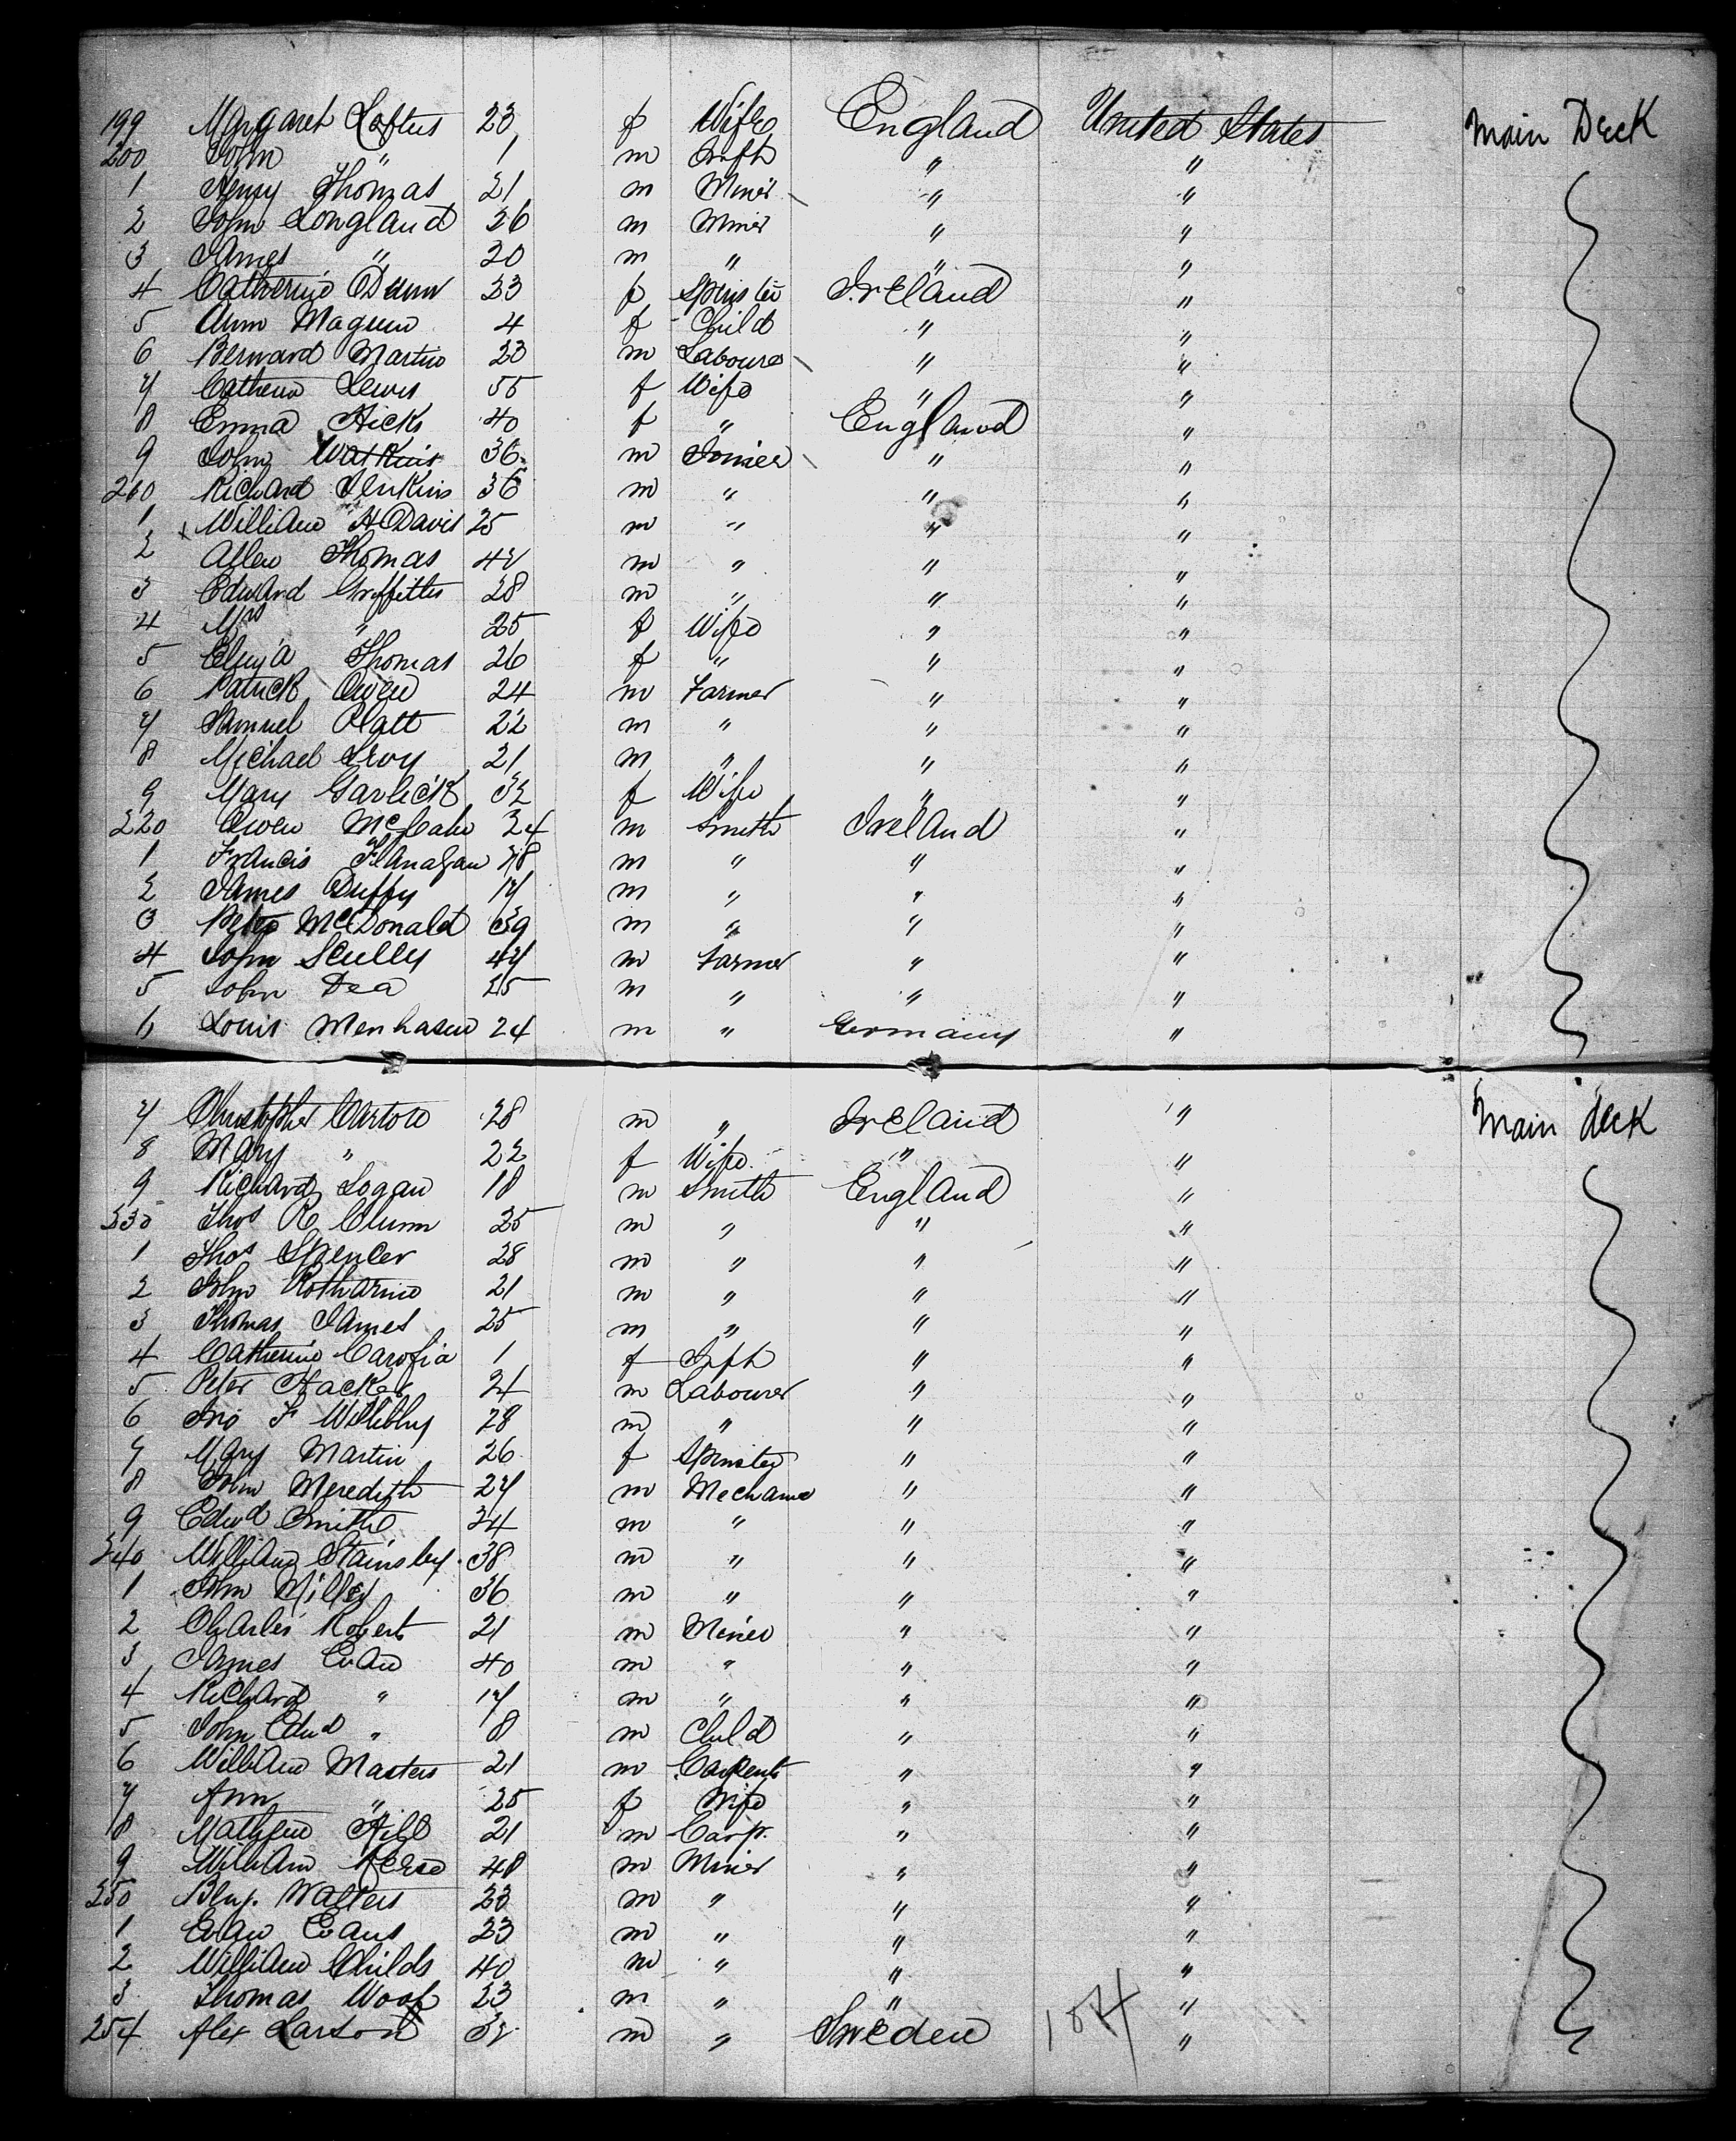 199 Margaret Loftus 23 f Wife England United States Main Deck
200 John " 1 m Infh " "
1 Henry Thomas 21 m Miner " "
2 John Longland 26 m Miner " "
3 James " 20 m " " "
4 Catherine Dunn 23 f Spinster Ireland "
5 Ann Maguin 4 f Child " "
6 Bernard Martin 23 m Labourer " "
7 Catherin Lewis 55 f Wife " "
8 Emma Hicks 40 f " England "
9 John Watkins 36 m Joiner " "
210 Richard Jenkins 36 m " " "
1 x William H Davis 25 m " " "
2 Allen Thomas 47 m " " "
3 Edward Griffiths 28 m " " "
4 Mrs " 25 f Wife " "
5 Eliza Thomas 26 f " " "
6 Patrick Owen 24 m Farmer " "
7 Samuel Platt 22 m " " "
8 Michael Troy 21 m " " "
9 Mary Garlick 32 f Wife " "
220 Owen McCabe 24 m Smith Ireland "
1 Francis Flanagan 28 m " " "
2 James Duffy 17 m " " "
3 Peter McDonald 39 m " " "
4 John Scully 47 m Farmer " "
5 John Dea 25 m " " "
6 Louis Menhasen 24 m " Germany "
7 Christopher Carton 28 m " Ireland " Main deck
8 Mary " 22 f Wife " "
9 Richard Logan 18 m Smith England "
230 Thos R Clunn 25 m " " "
1 Thos Spencer 28 m " " "
2 John Rotharme 21 m " " "
3 Thomas James 25 m " " "
4 Catherine 1 f Infh " "
5 Peter Hacker 24 m Labourer " "
6 Jno F 28 m " " "
7 Mary Martin 26 f Spinster " "
8 John Meredith 27 m Mechanic " "
9 Edwd Smith 24 m " " "
240 William Stainsby 38 m " " "
1 John Miller 36 m " " "
2 Charles Robert 21 m Miner " "
3 James Evan 40 m " " "
4 Richard " 17 m " " "
5 John Edwd " 8 m Child " "
6 William Masters 21 m Carpent " "
7 Ann " 25 f Wife " "
8 Mathew Hill 21 m Carp. " "
9 William 48 m Miner " "
250 Benj. Walters 23 m " " "
1 Evan Evans 23 m " " "
2 William Childs 40 m " " "
3 Thomas Woof 23 m " " "
254 Alex Larson 32 m " Sweden "